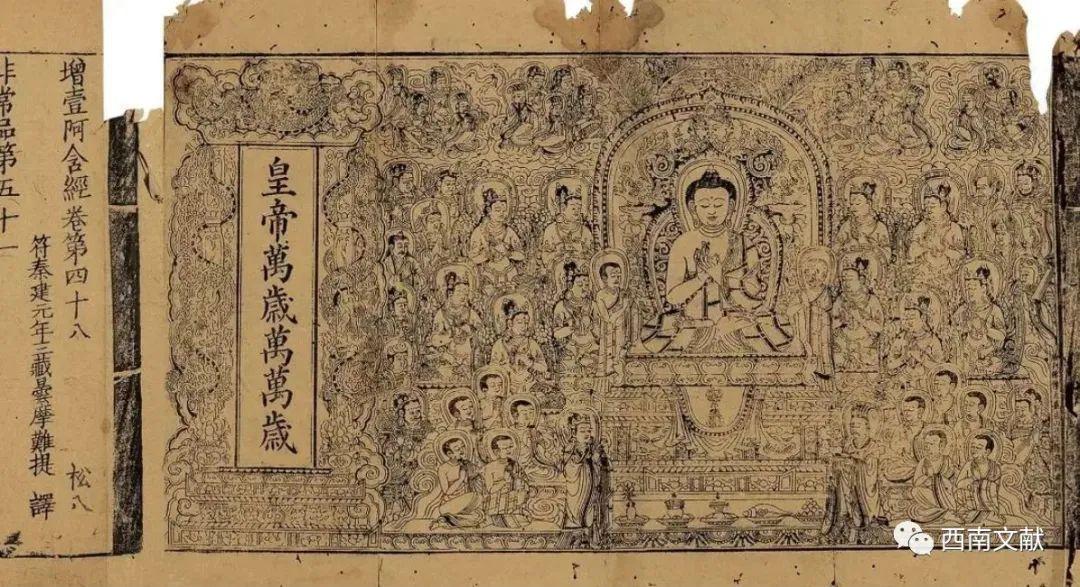 皇帝萬歲萬萬歲
增壹阿含經卷第四十八 松八
符秦建元年三藏曇摩難提 譯
非常品第五十一
西南文献